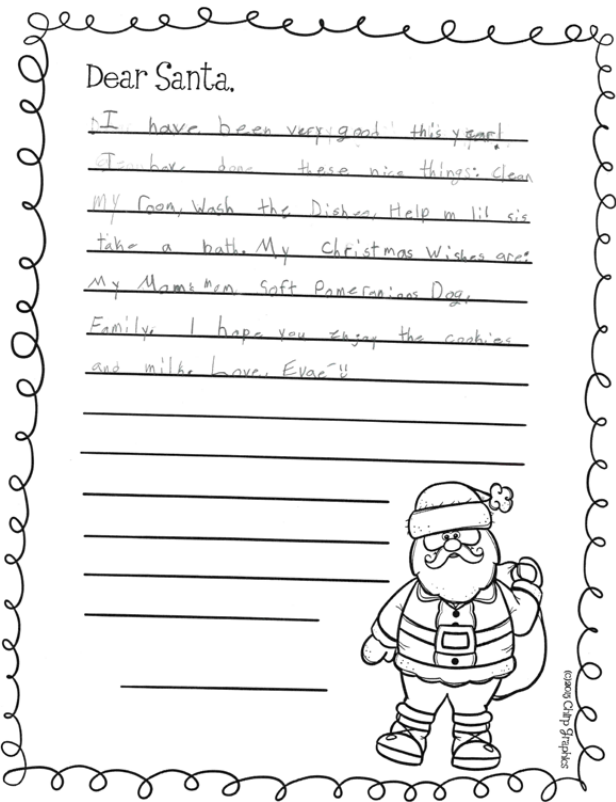 Dear Santa,
I have been very good this year!
I have done these nice things: Clean
My room, Wash the Dishes, Help m lil sis
take a bath. My Christmas Wishes are:
My Mom's mom, Soft Pomeranians Dog,
Family. I hope you Enjoy the cookies
and milk. Love, Evae
(c)2015 Chirp Graphics